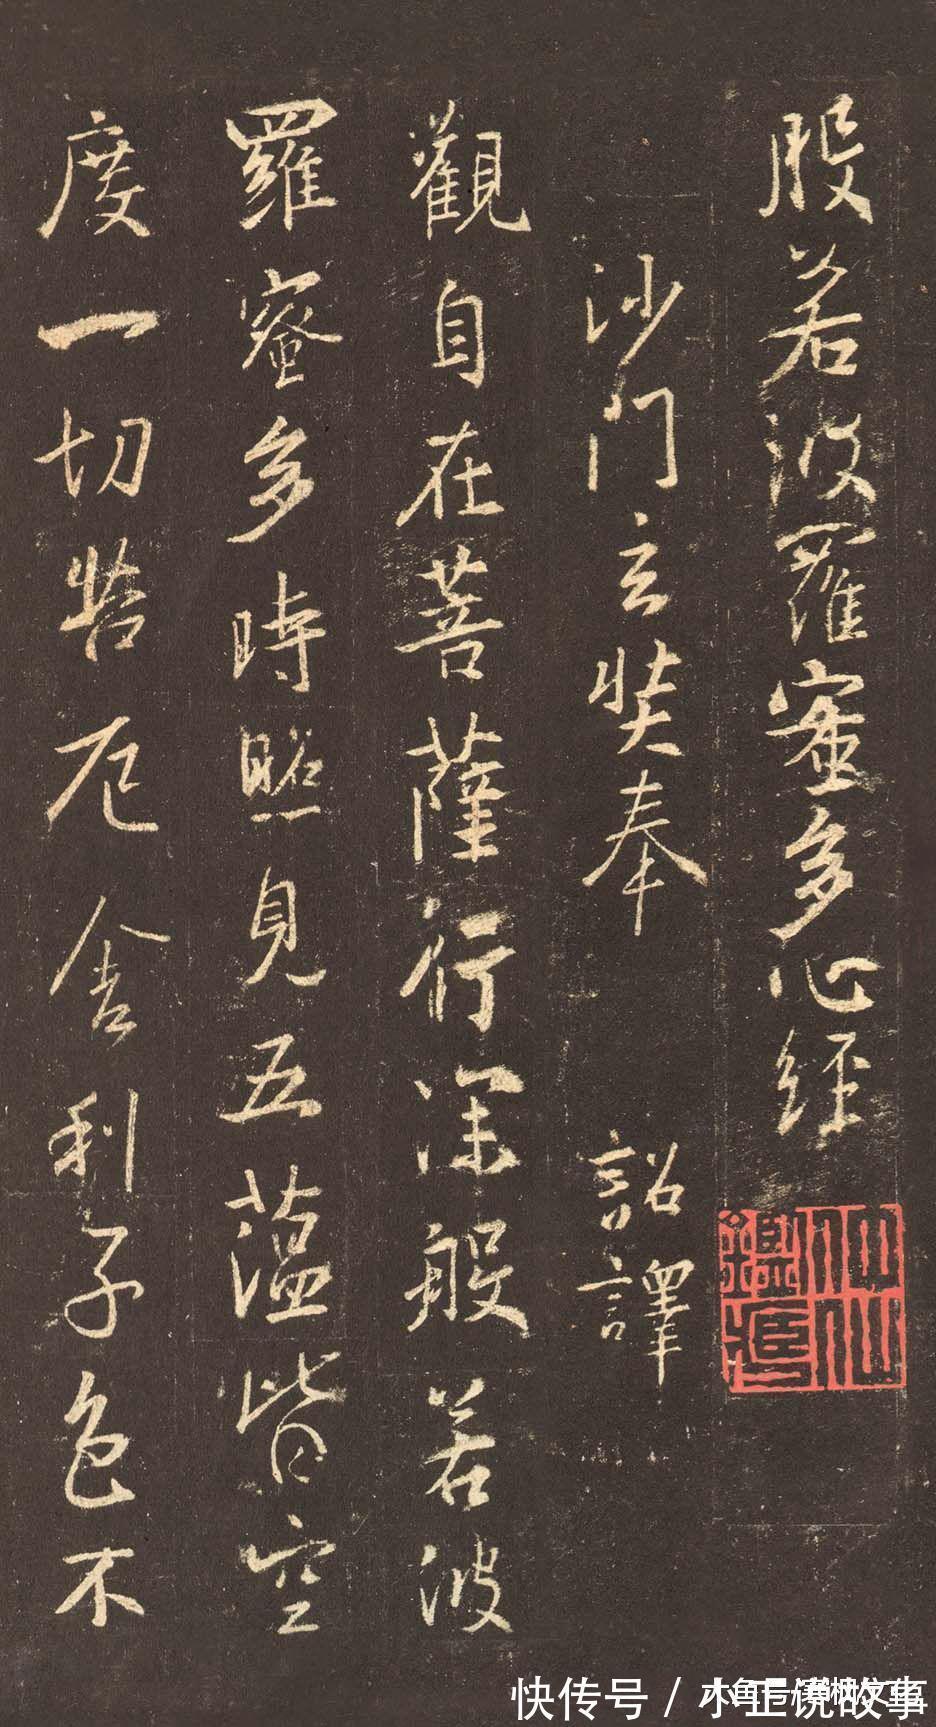 般若波羅蜜多心經
沙門玄奘奉 詔譯
觀自在菩薩行深般若波
羅蜜多時照見五蘊皆空
度一切苦厄舍利子色不
快传号/小正说故事